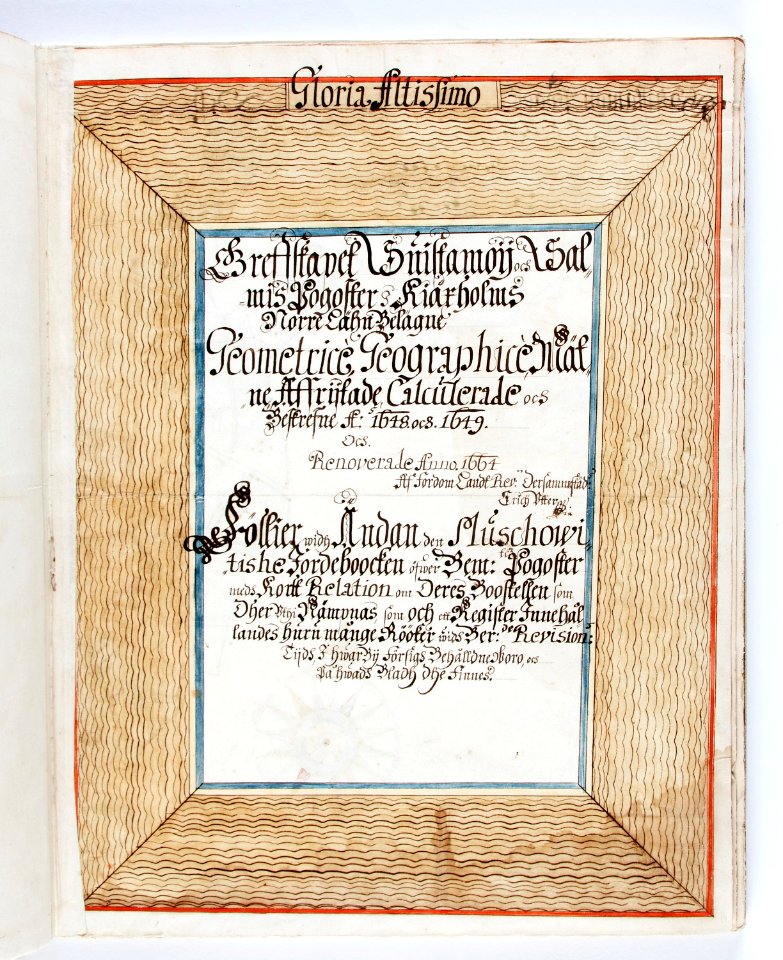 Gloria Altissimo
Greffskapet Suistamoÿ och Sal=
=mis Pogoster i Kiäxholms
Norre Lähn Belägne
Geometricè, Geographicè, Mäk=
ne Affrijtade, Calculerade och
Beskrefne A: 1648. och. 1649.
Och.
Renoverade Anno. 1664
Af fordom Landt
Erich Utter
Föllier widh Ändan den Muschowi=
=tishe Jordeboocken öfwer Bem:te Pogoster
medh Kort Relation om Deres Boostellen som
Dher Uthi Nämpnas som och ett Register Innehål
landes huru månge Rööker widh Ber:de Revision:
Tijdh I hwar By försigh Behålldne woro, och
På hwadh Bladh dhe finnes.